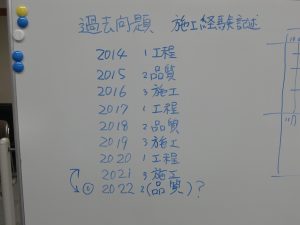 過去問題 施工経験記述
2014 1 工程
2015 2 品質
2016 3 施工
2017 1 工程
2018 2 品質
2019 3 施工
2020 1 工程
2021 3 施工
② 2022 2(品質)?